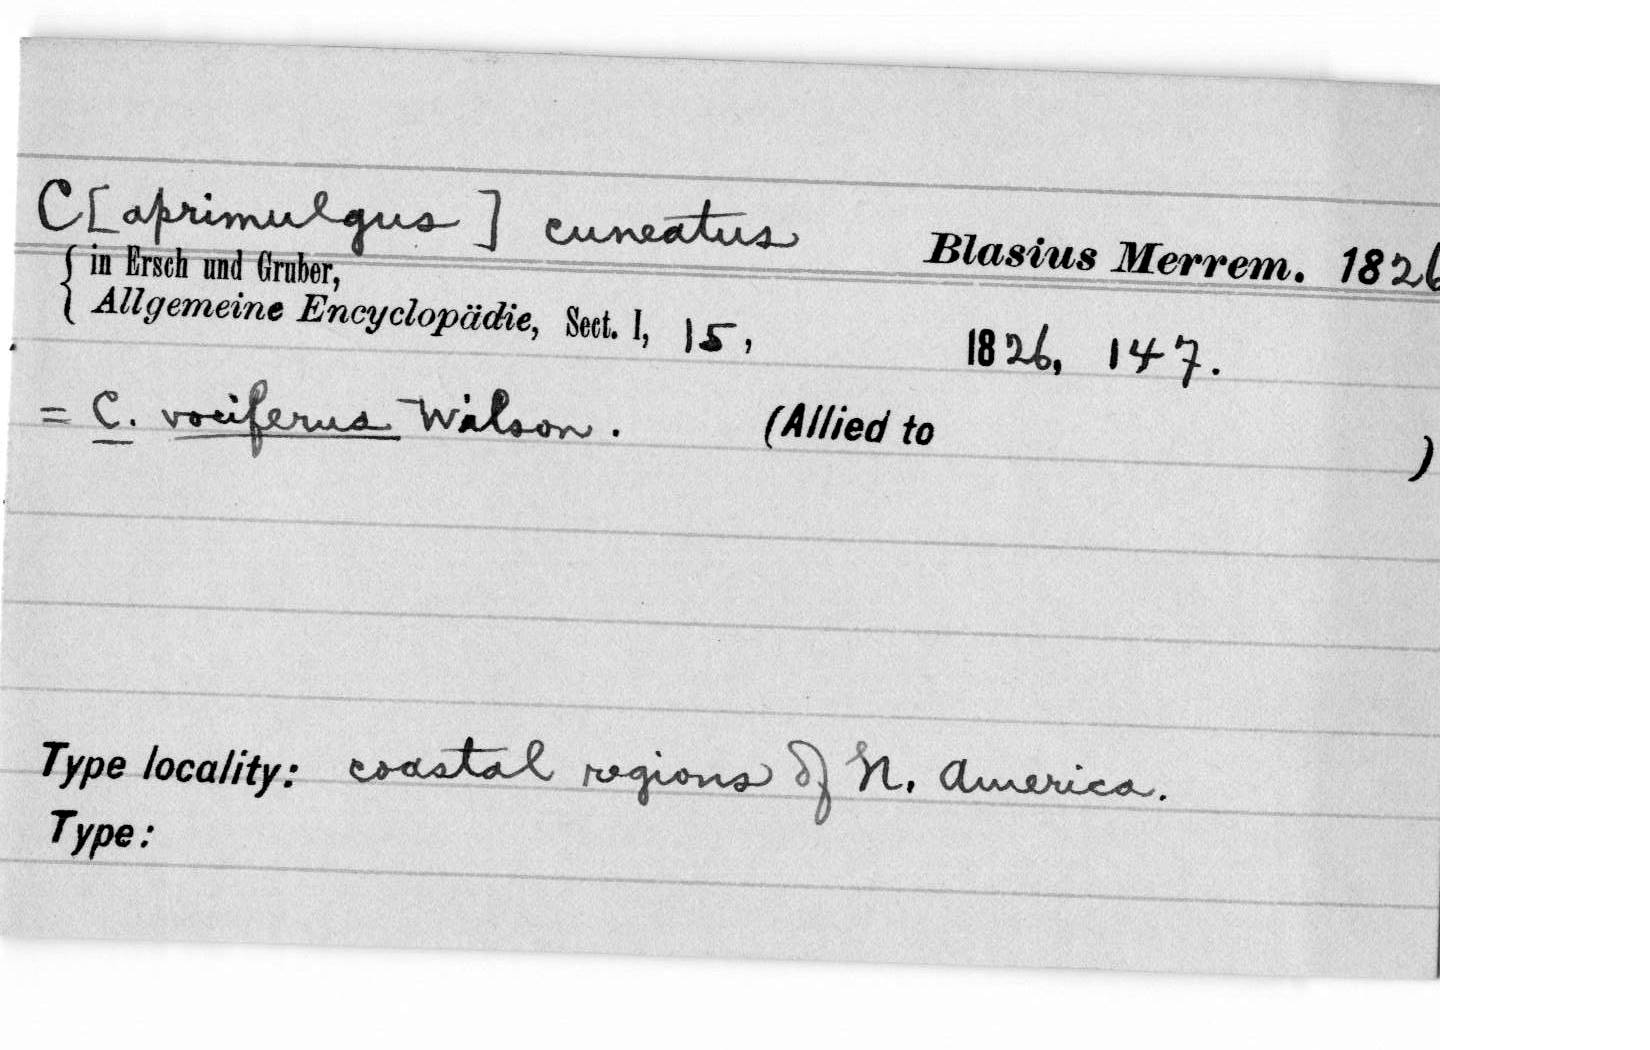 C[aprimulgus] cuneatus Blasius Merrem. 1826
in Ersch und Gruber,
Allgemeine Encyclopädie, Sect. I, 15, 1826, 147.
= C. vociferus Wilson. (Allied to )
Type locality: coastal regions of N. America.
Type: